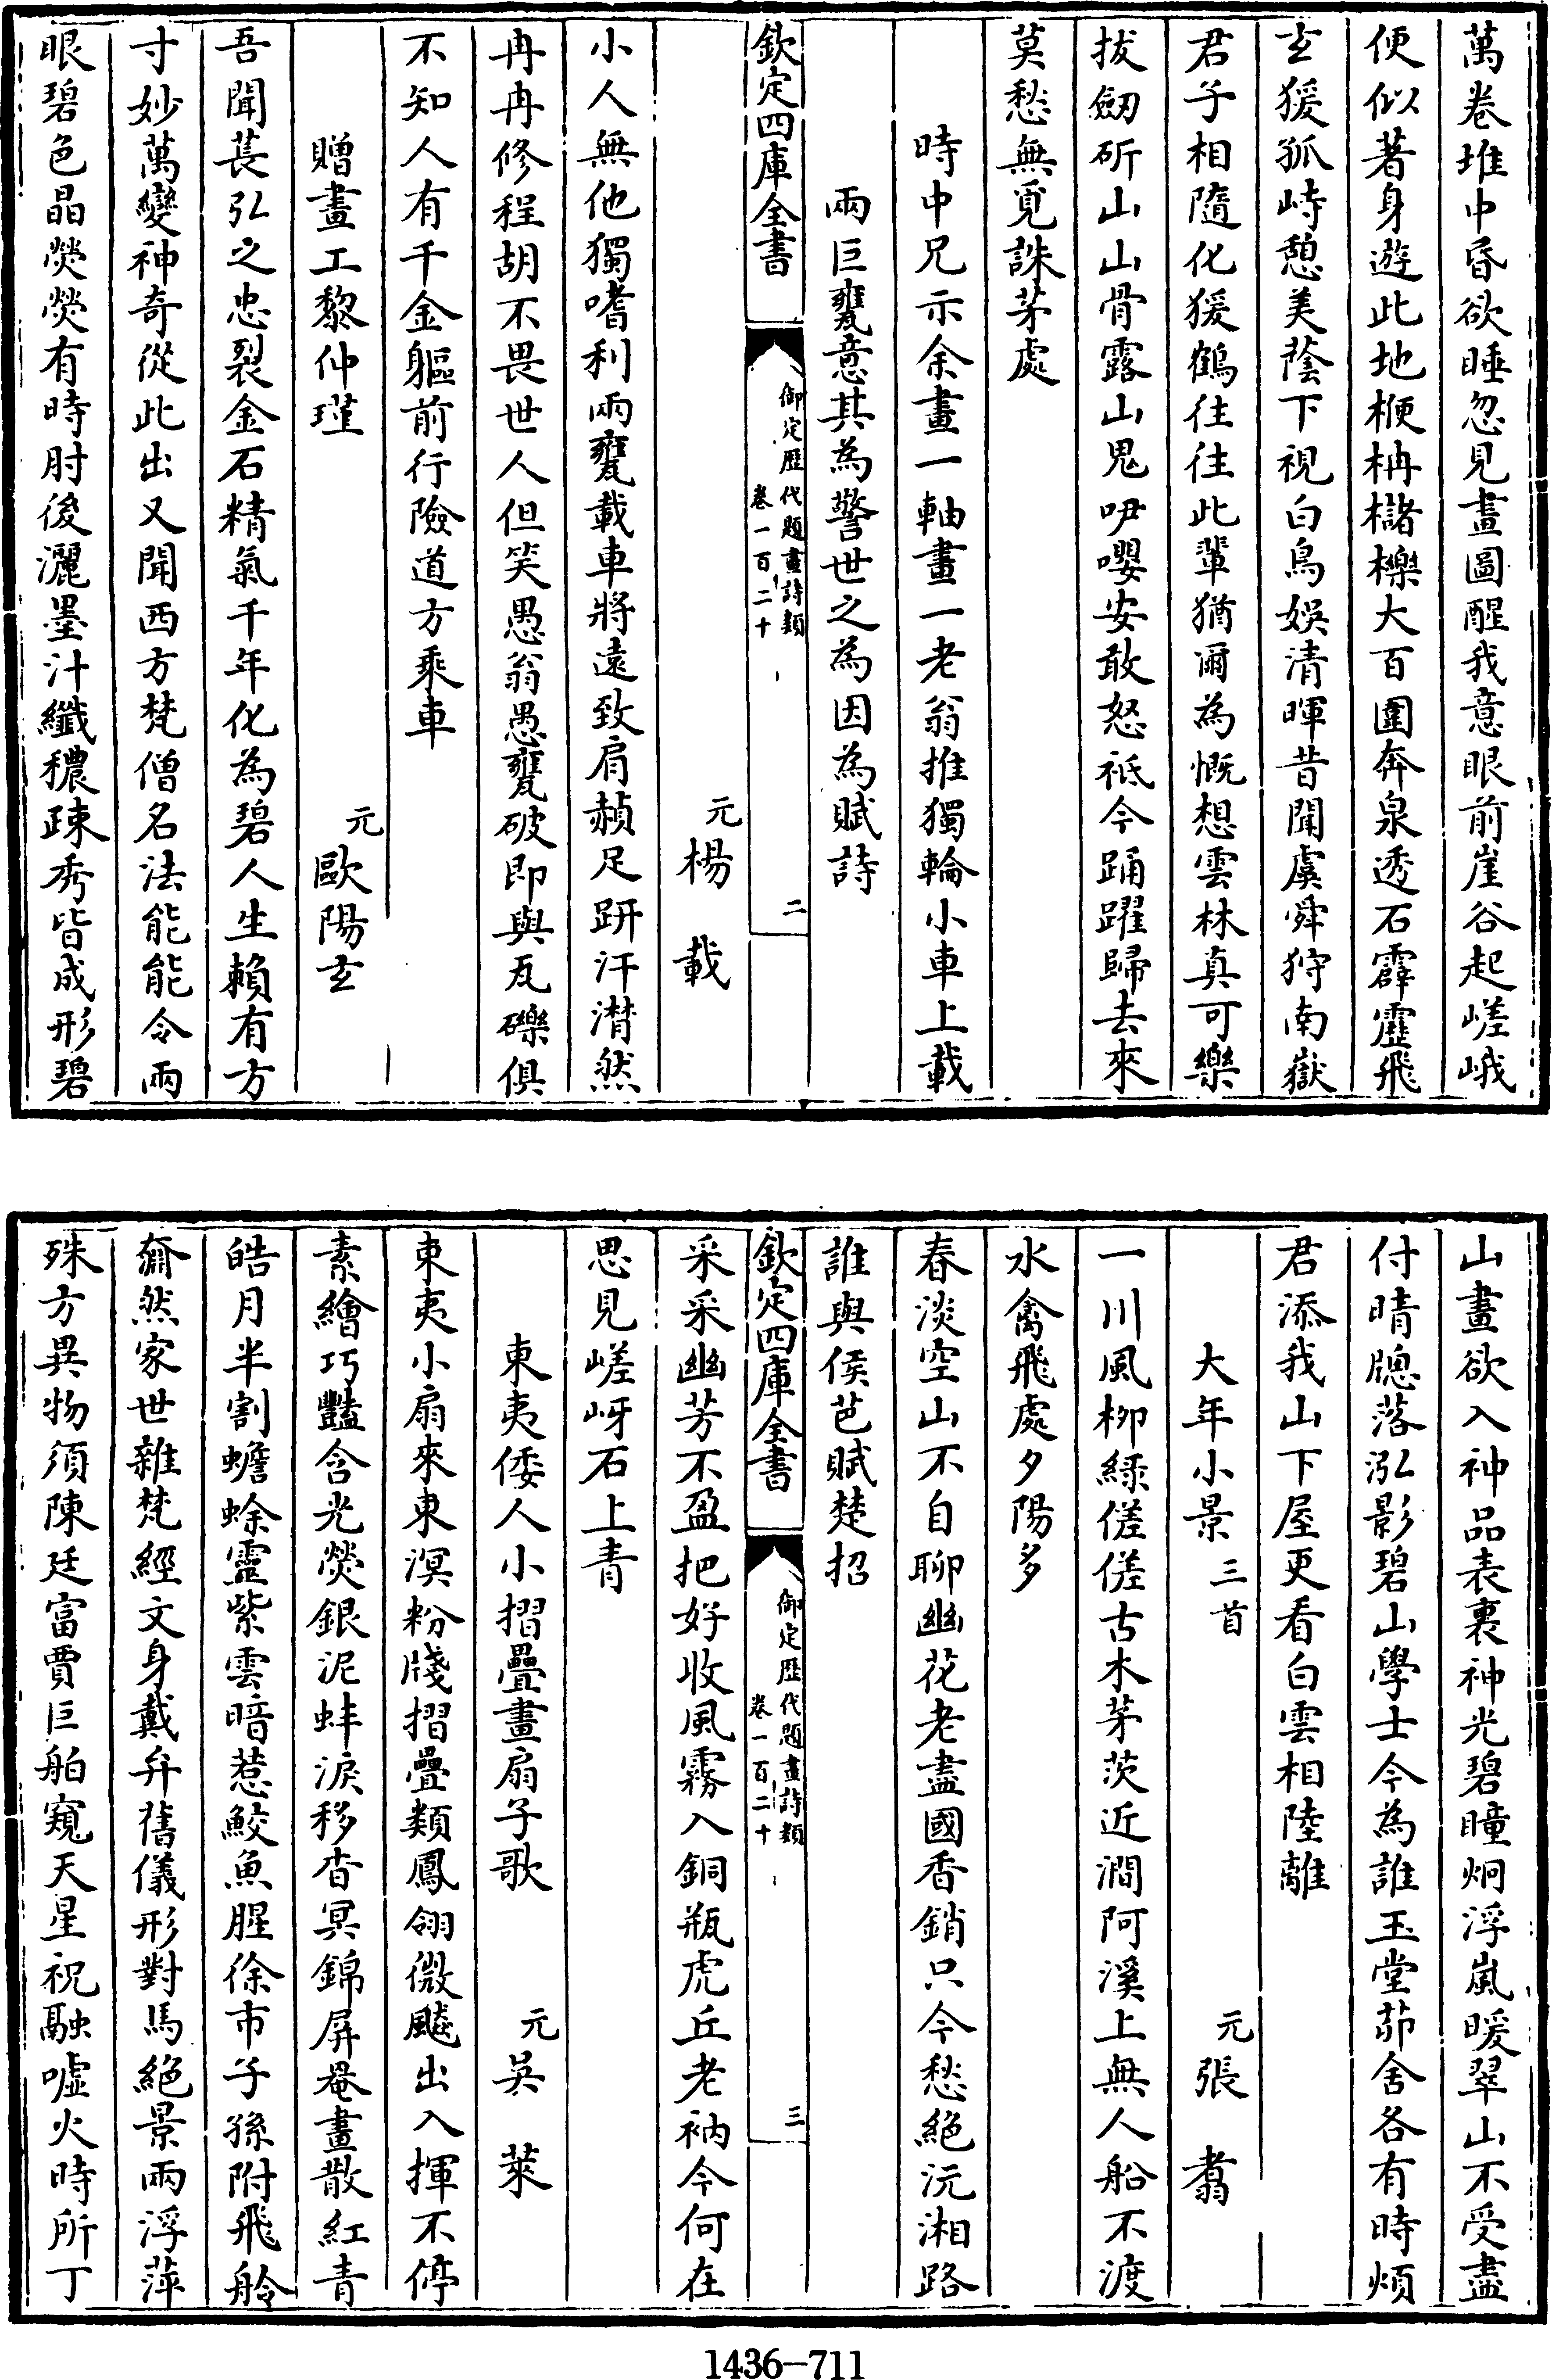 萬卷堆中昏欲睡忽見畫圖醒我意眼前崖谷起嵯峨
便似著身遊此地楩枏櫧櫟大百圍奔泉透石霹靂飛
玄猨狐峙憩美蔭下視白鳥娛清暉昔聞虞舜狩南嶽
君子相隨化猨鶴往往此輩猶爾為慨想雲林真可樂
拔劒斫山山骨露山鬼咿嚶安敢怒祗今踊躍歸去來
莫愁無覓誅茅處
時中兄示余畫一軸畫一老翁推獨輪小車上載
兩巨甕意其為警世之為因為賦詩
欽定四庫全書
御定歷代題畫詩類
卷一百二十
二
元楊載
小人無他獨嗜利兩甕載車將遠致肩赬足趼汗潸然
冉冉修程胡不畏世人但笑愚翁愚甕破即與瓦礫俱
不知人有千金軀前行險道方乘車
贈畫工黎仲瑾
元歐陽玄
吾聞萇弘之忠裂金石精氣千年化為碧人生賴有方
寸妙萬變神奇從此出又聞西方梵僧名法能能令兩
眼碧色晶熒熒有時肘後灑墨汁纖穠疎秀皆成形碧
山畫欲入神品表裏神光碧瞳炯浮嵐暖翠山不受盡
付晴牕落泓影碧山學士今為誰玉堂茆舍各有時煩
君添我山下屋更看白雲相陸離
大年小景三首
元張翥
一川風柳綠傞傞古木茅茨近澗阿溪上無人船不渡
水禽飛處夕陽多
春淡空山不自聊幽花老盡國香銷只今愁絕沅湘路
誰與侯芭賦楚招
欽定四庫全書
御定歷代題畫詩類
卷一百二十
三
采采幽芳不盈把好收風霧入銅瓶虎丘老衲今何在
思見嵯岈石上青
東夷倭人小摺疊畫扇子歌
元吳萊
東夷小扇來東溟粉牋摺疊類鳳翎微飈出入揮不停
素繪巧豔含光熒銀泥蚌淚移杳冥錦屏罨畫散紅青
皓月半割蟾蜍靈紫雲暗惹鮫魚腥徐市子孫附飛舲
奫然家世雜梵經文身戴弁舊儀形對馬絕景兩浮萍
殊方異物須陳廷富賈巨舶窺天星祝融噓火時所丁
1436-711